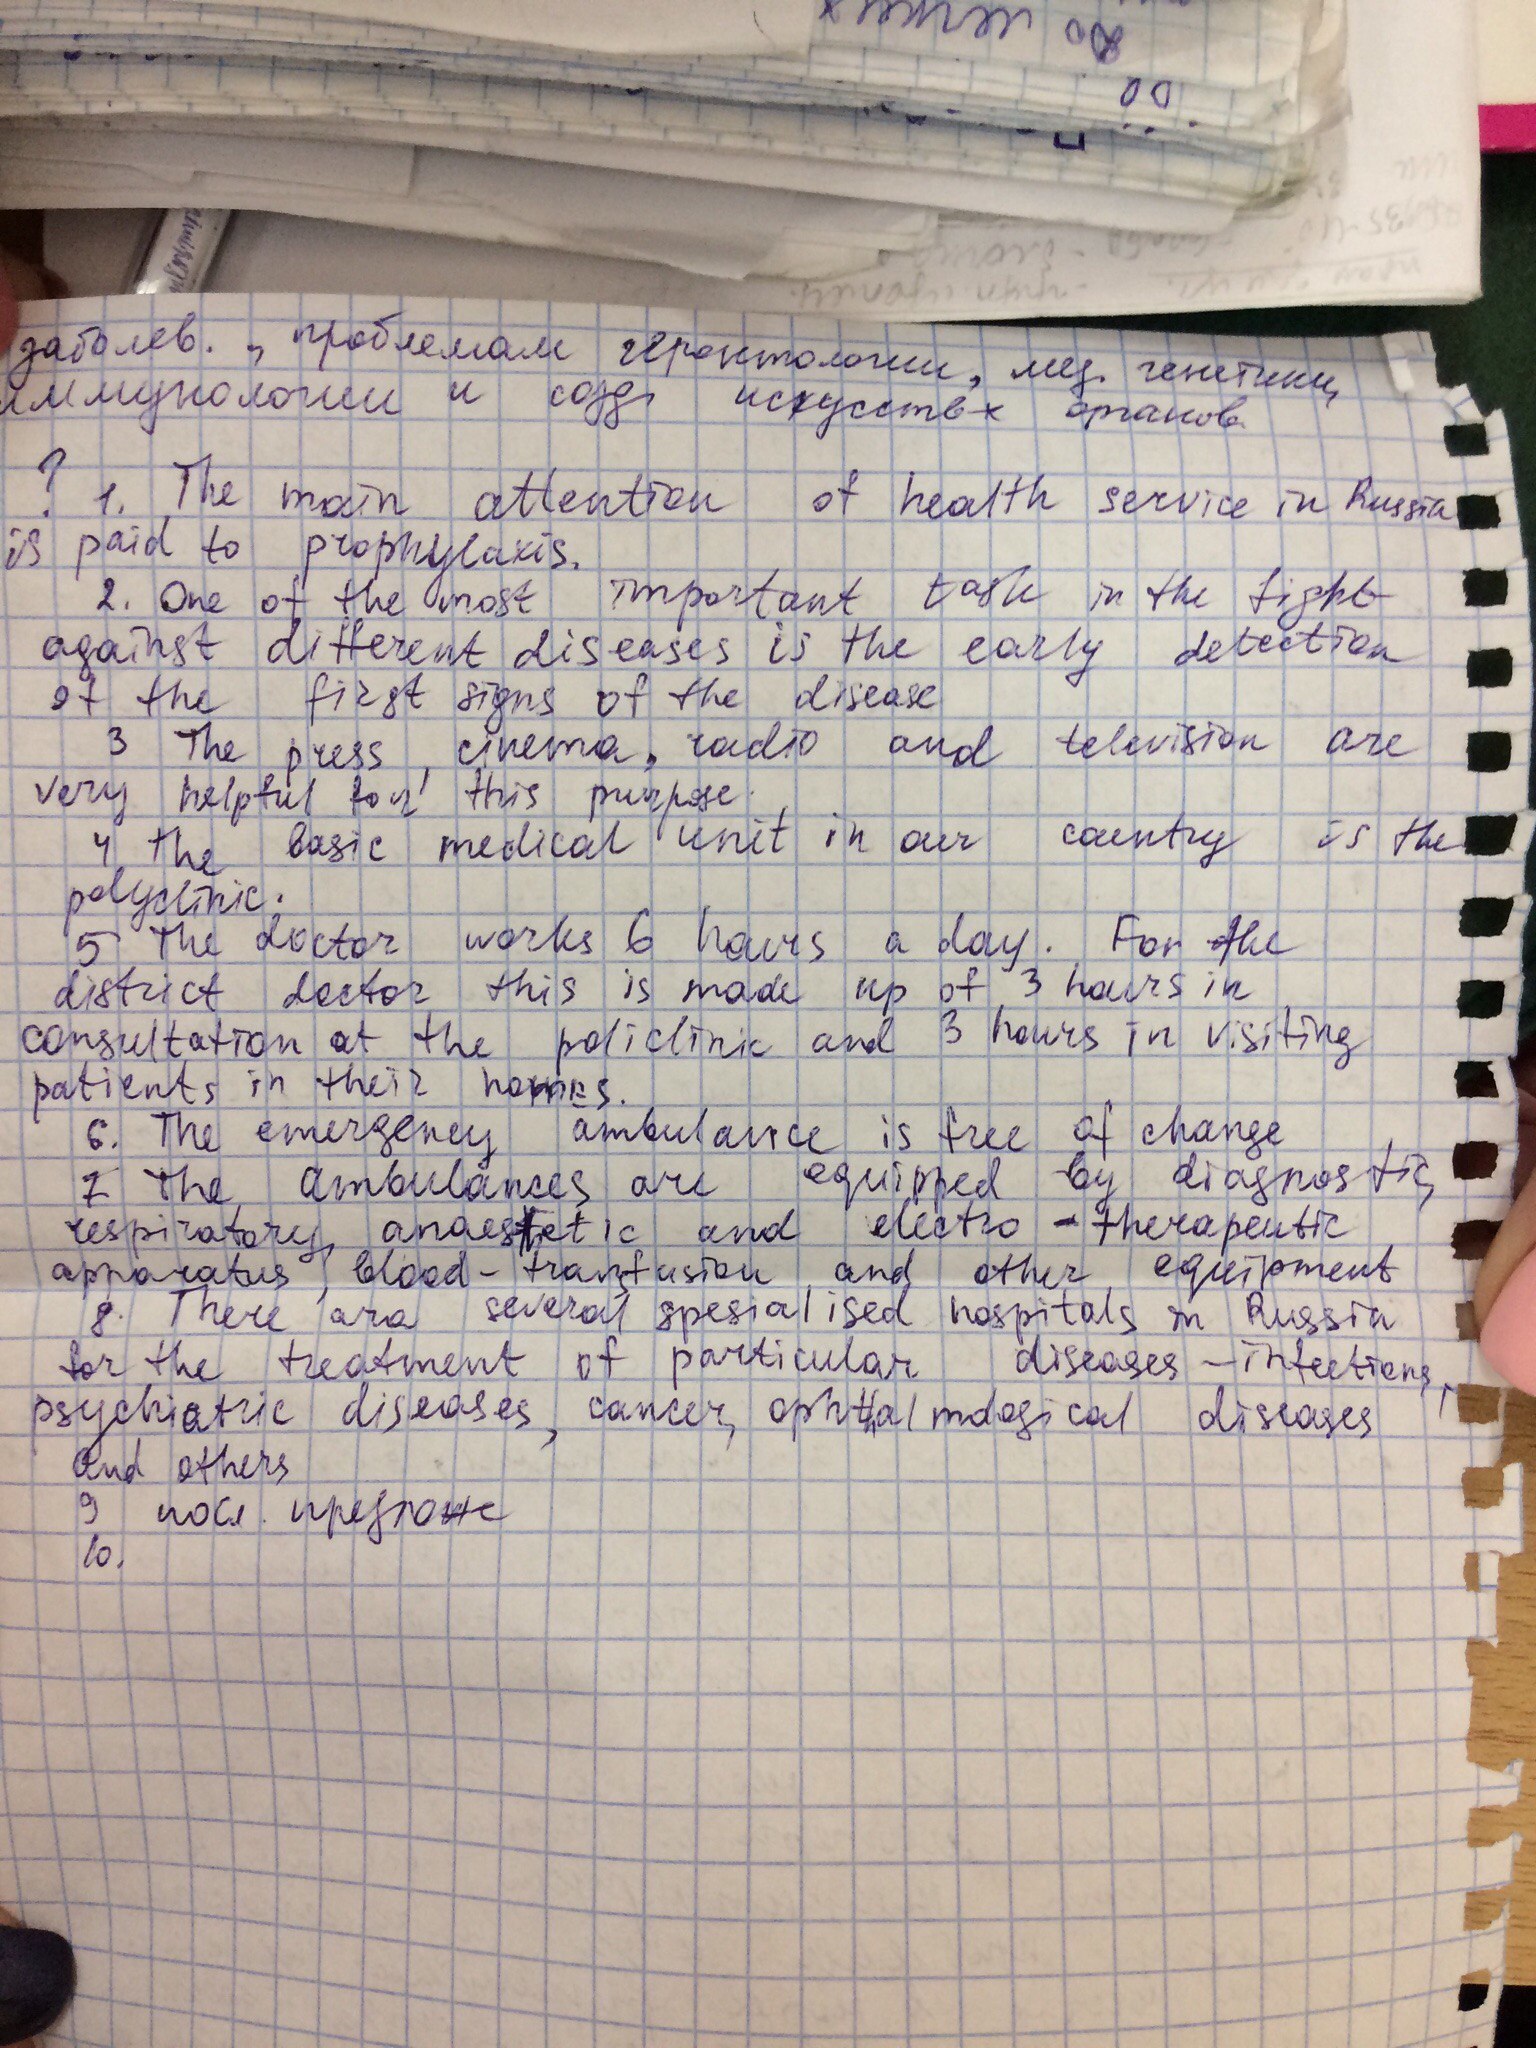 до
заболев. , проблемам геронтологии, мед. генетики,
иммунологии и созд. искусств-х органов
? 1. The main attention of health service in Russia
is paid to prophylaxis.
2. One of the most important task in the fight
against different diseases is the early detection
of the first signs of the disease
3 The press, cinema, radio and television are
very helpful for this purpose.
4 The basic medical unit in our country is the
polyclinic.
5 The doctor works 6 hours a day. For the
district doctor this is made up of 3 hours in
consultation at the policlinic and 3 hours in visiting
patients in their homes.
6. The emergency ambulance is free of change
7 The ambulances are equipped by diagnostic,
respiratory, anaesthetic and electro-therapeutic
apparatus, blood-transfusion and other equipment
8. There ara several spesialised hospitals in Russia
for the treatment of particular diseases - infections,
psychiatric diseases, cancer, ophthalmological diseases
and others
9 посл. предлож
10.